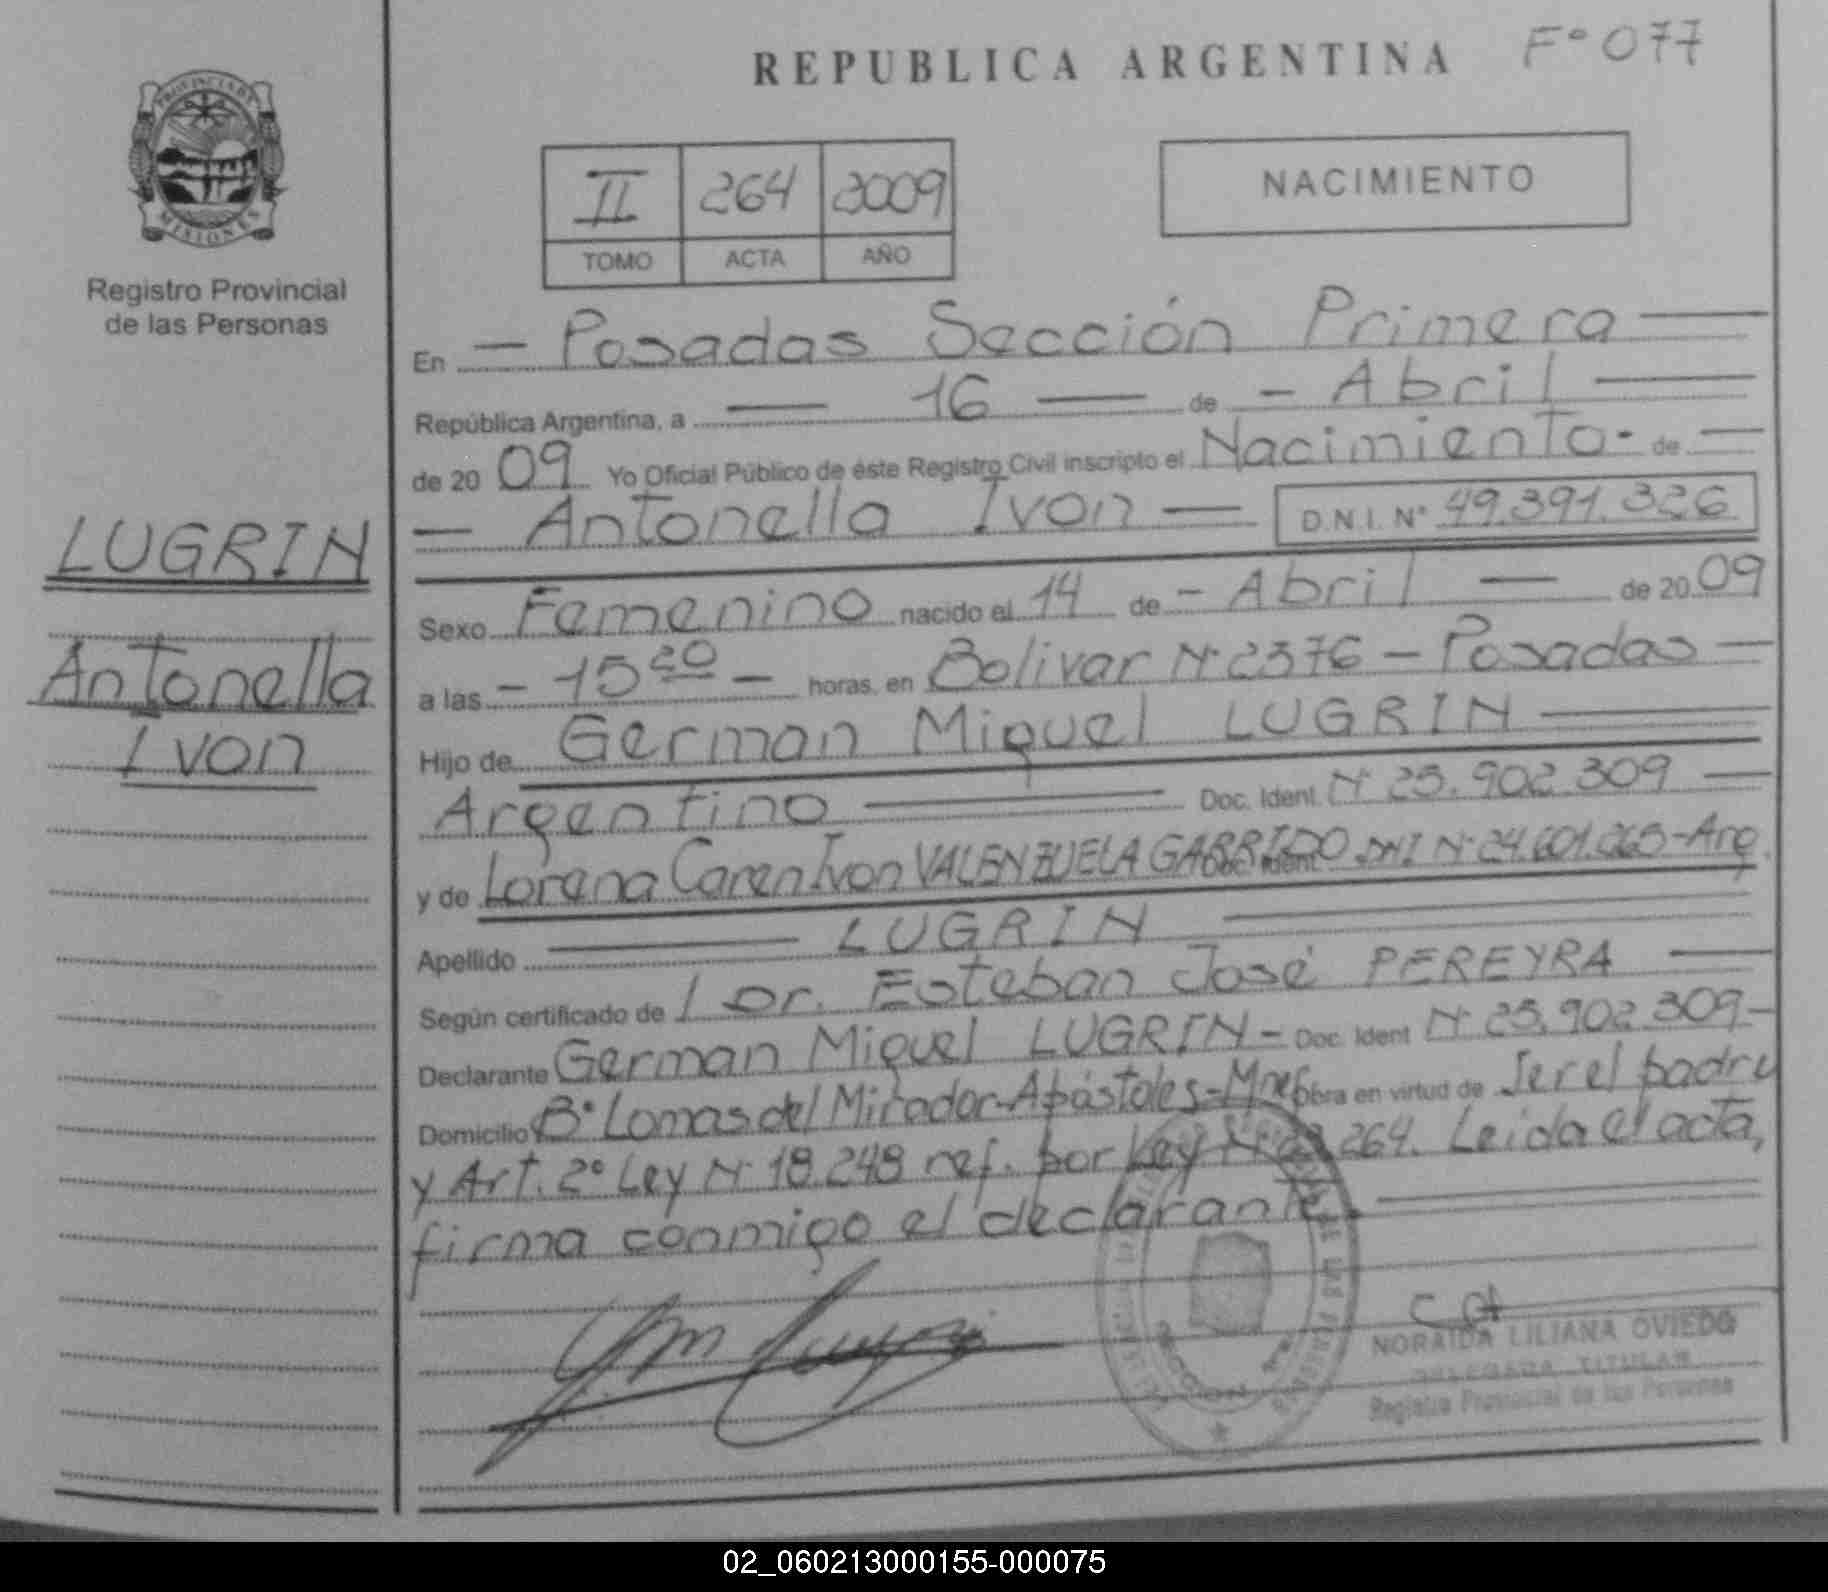 REPUBLICA ARGENTINA F° 077
PROVINCIA DE
MISIONES
Registro Provincial
de las Personas
II 264 2009
TOMO ACTA AÑO
NACIMIENTO
LUGRIN
Antonella
Ivon
En - Posadas Sección Primera
República Argentina, a 16 de - Abril
de 20 09 Yo Oficial Público de éste Registro Civil inscripto el Nacimiento - de
Antonella Ivon D.N.I. N° 49.391.326
Sexo Femenino nacido el 14 de - Abril de 20 09
a las - 15 20 - horas, en Bolivar N° 2376 - Posadas
Hijo de German Miguel LUGRIN
Argentino Doc. Ident. N° 25.902.309
y de Lorena Caren Ivon VALENZUELA GARRIDO DNI N° 24.601.265 - Arg.
Apellido LUGRIN
Según certificado de l Dr. Esteban José PEREYRA
Declarante German Miguel LUGRIN - Doc. Ident N° 25.902.309 -
Domicilio B° Lomas del Mirador - Apóstoles - Mnes obra en virtud de Ser el padre
y Art. 2° Ley N° 18.248 ref. por Ley N° 23.264. Leida el acta,
firma conmigo el declarante.
NORAIDA LILIANA OVIEDO
DELEGADA TITULAR
Registro Provincial de las Personas
02_060213000155-000075